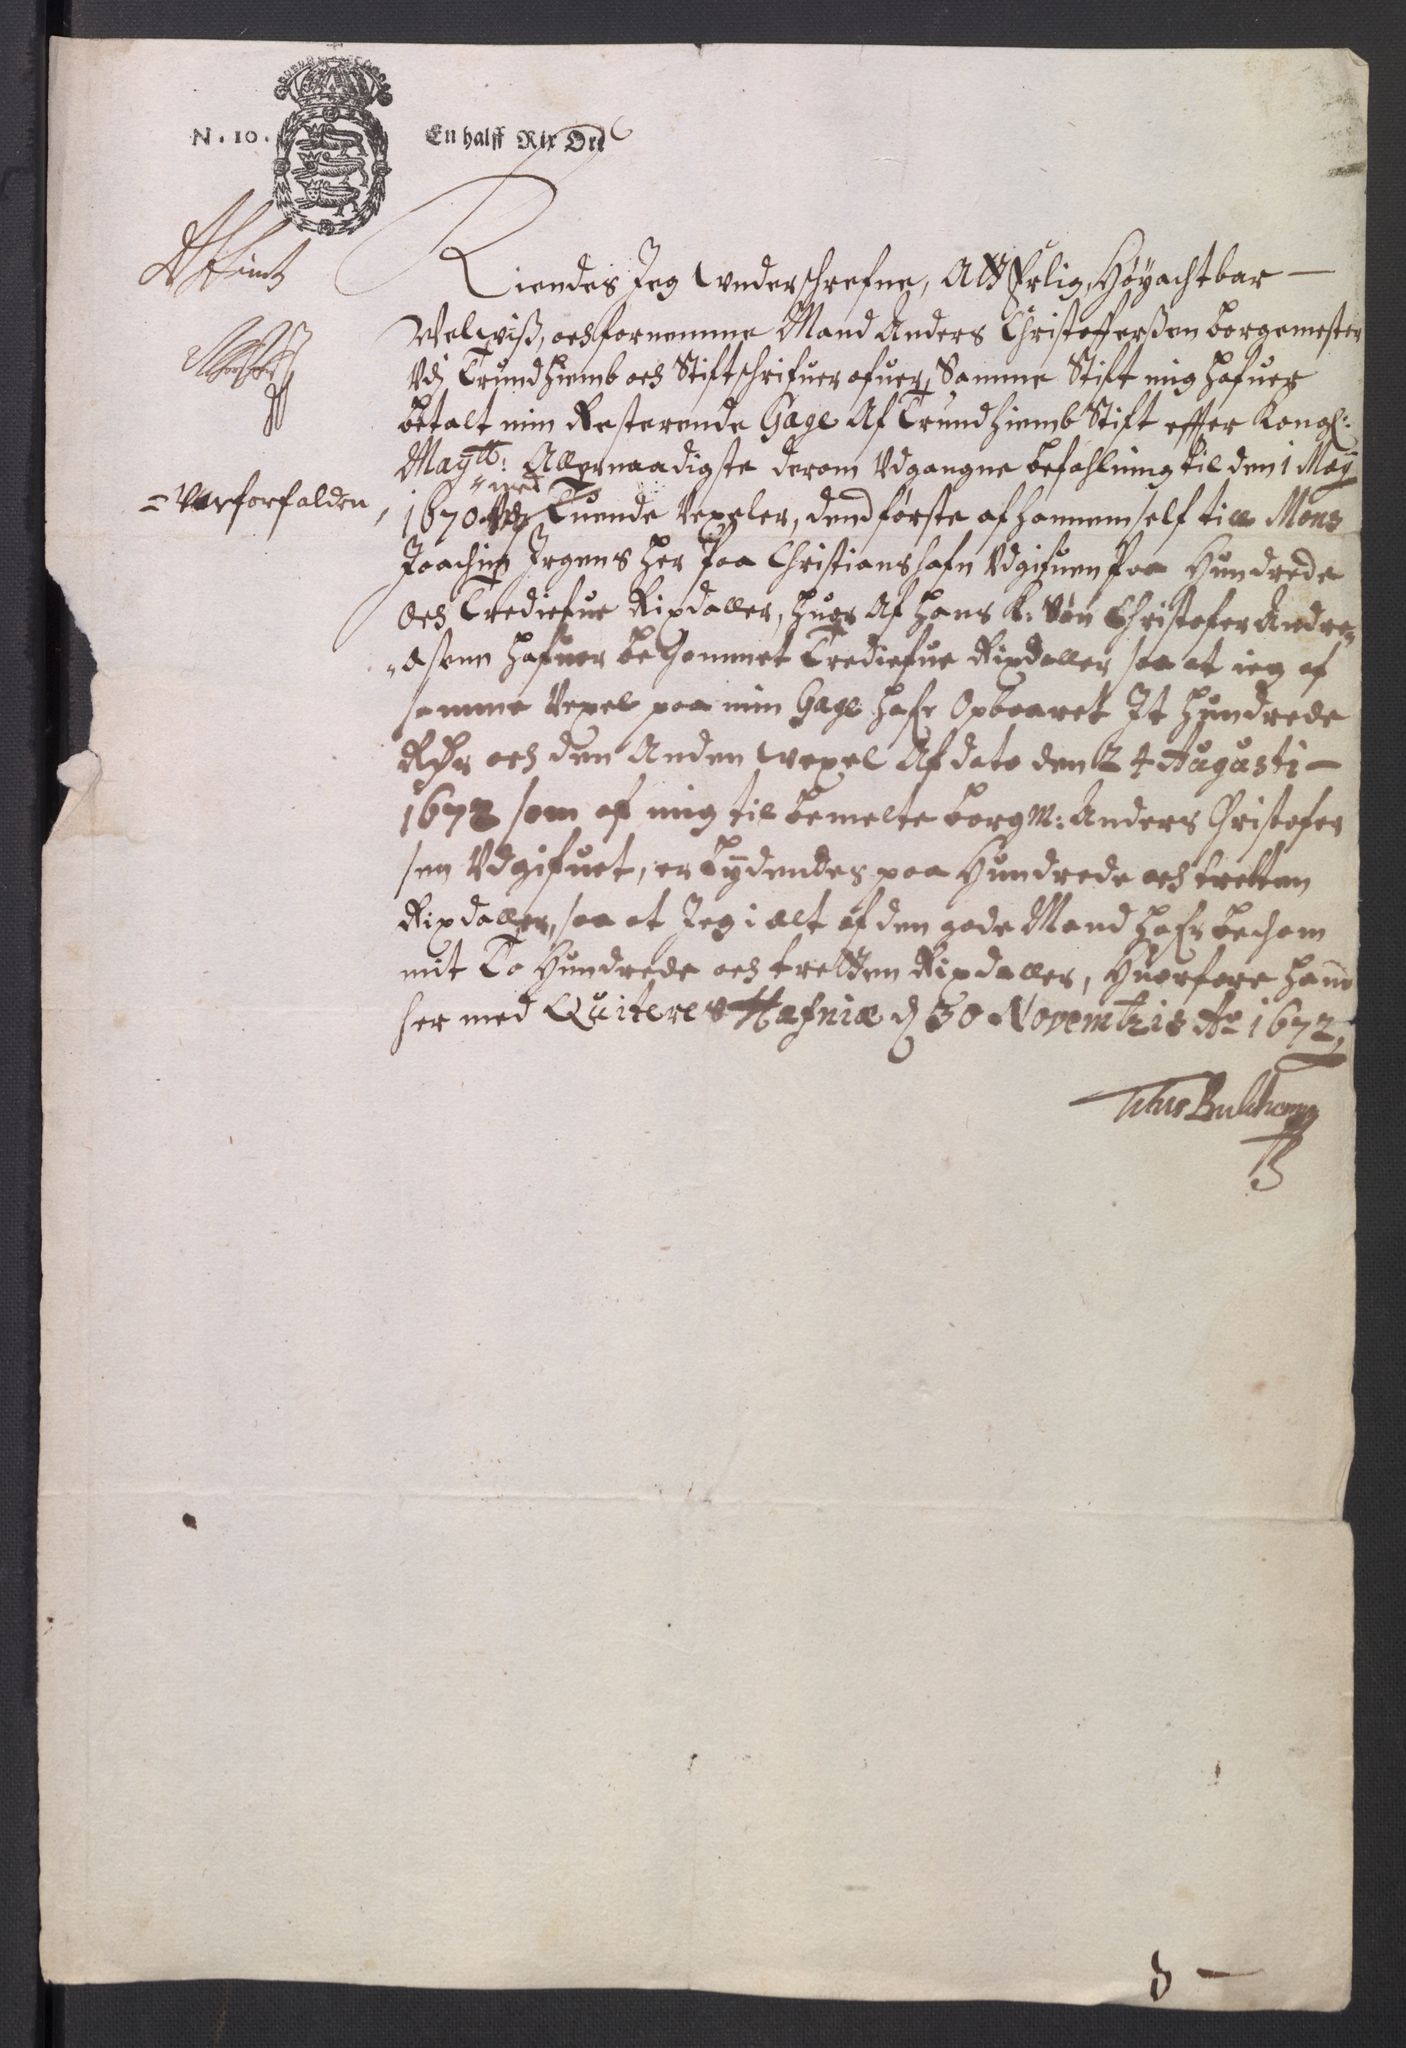 N. 10. En halff Rix Ort
Kiendes Jeg Underschrefne, Att Erlig, Høyachtbar
Welwiß, och fornemme Mand Anders Christofferßen borgemester
Udj Trundhiemb och Stiftschrifuer ofuer, Samme Stift mig hafuer
betalt min Resterende Gage Af Trundhiemb Stift effter Kongl:
Maytt: Allernaadigste derom Udgangne befahlning til den 1 May
= Var forfalden,
1670 med Tuende Vexeler, dend første af hannem self till Mons
Joachim Irgens her paa Christianshafn Udgifuen paa Hundrede
och Trediefue Rixdaller, huor Af hans K: Søn Christofer Andre-
asenn hafuer bekommet Trediefue Rixdaller saa at ieg af
samme Vexel paa min Gage hafr Opboaret It hundrede
Rdr och den Anden vexel Af dato den 24 Augusti
1672 som af mig til bemelte borgm: Anders Christofer
sen Udgifuet, er lydendes paa Hundrede och tretten
Rixdaller, saa at Jeg i alt af den gode Mand hafr becham
mit To Hundrede och tretten Rixdaller, Huorfore hand
her med Quiteres Hafniæ d 30 Novembris Ao 1672,
Titus Bulche